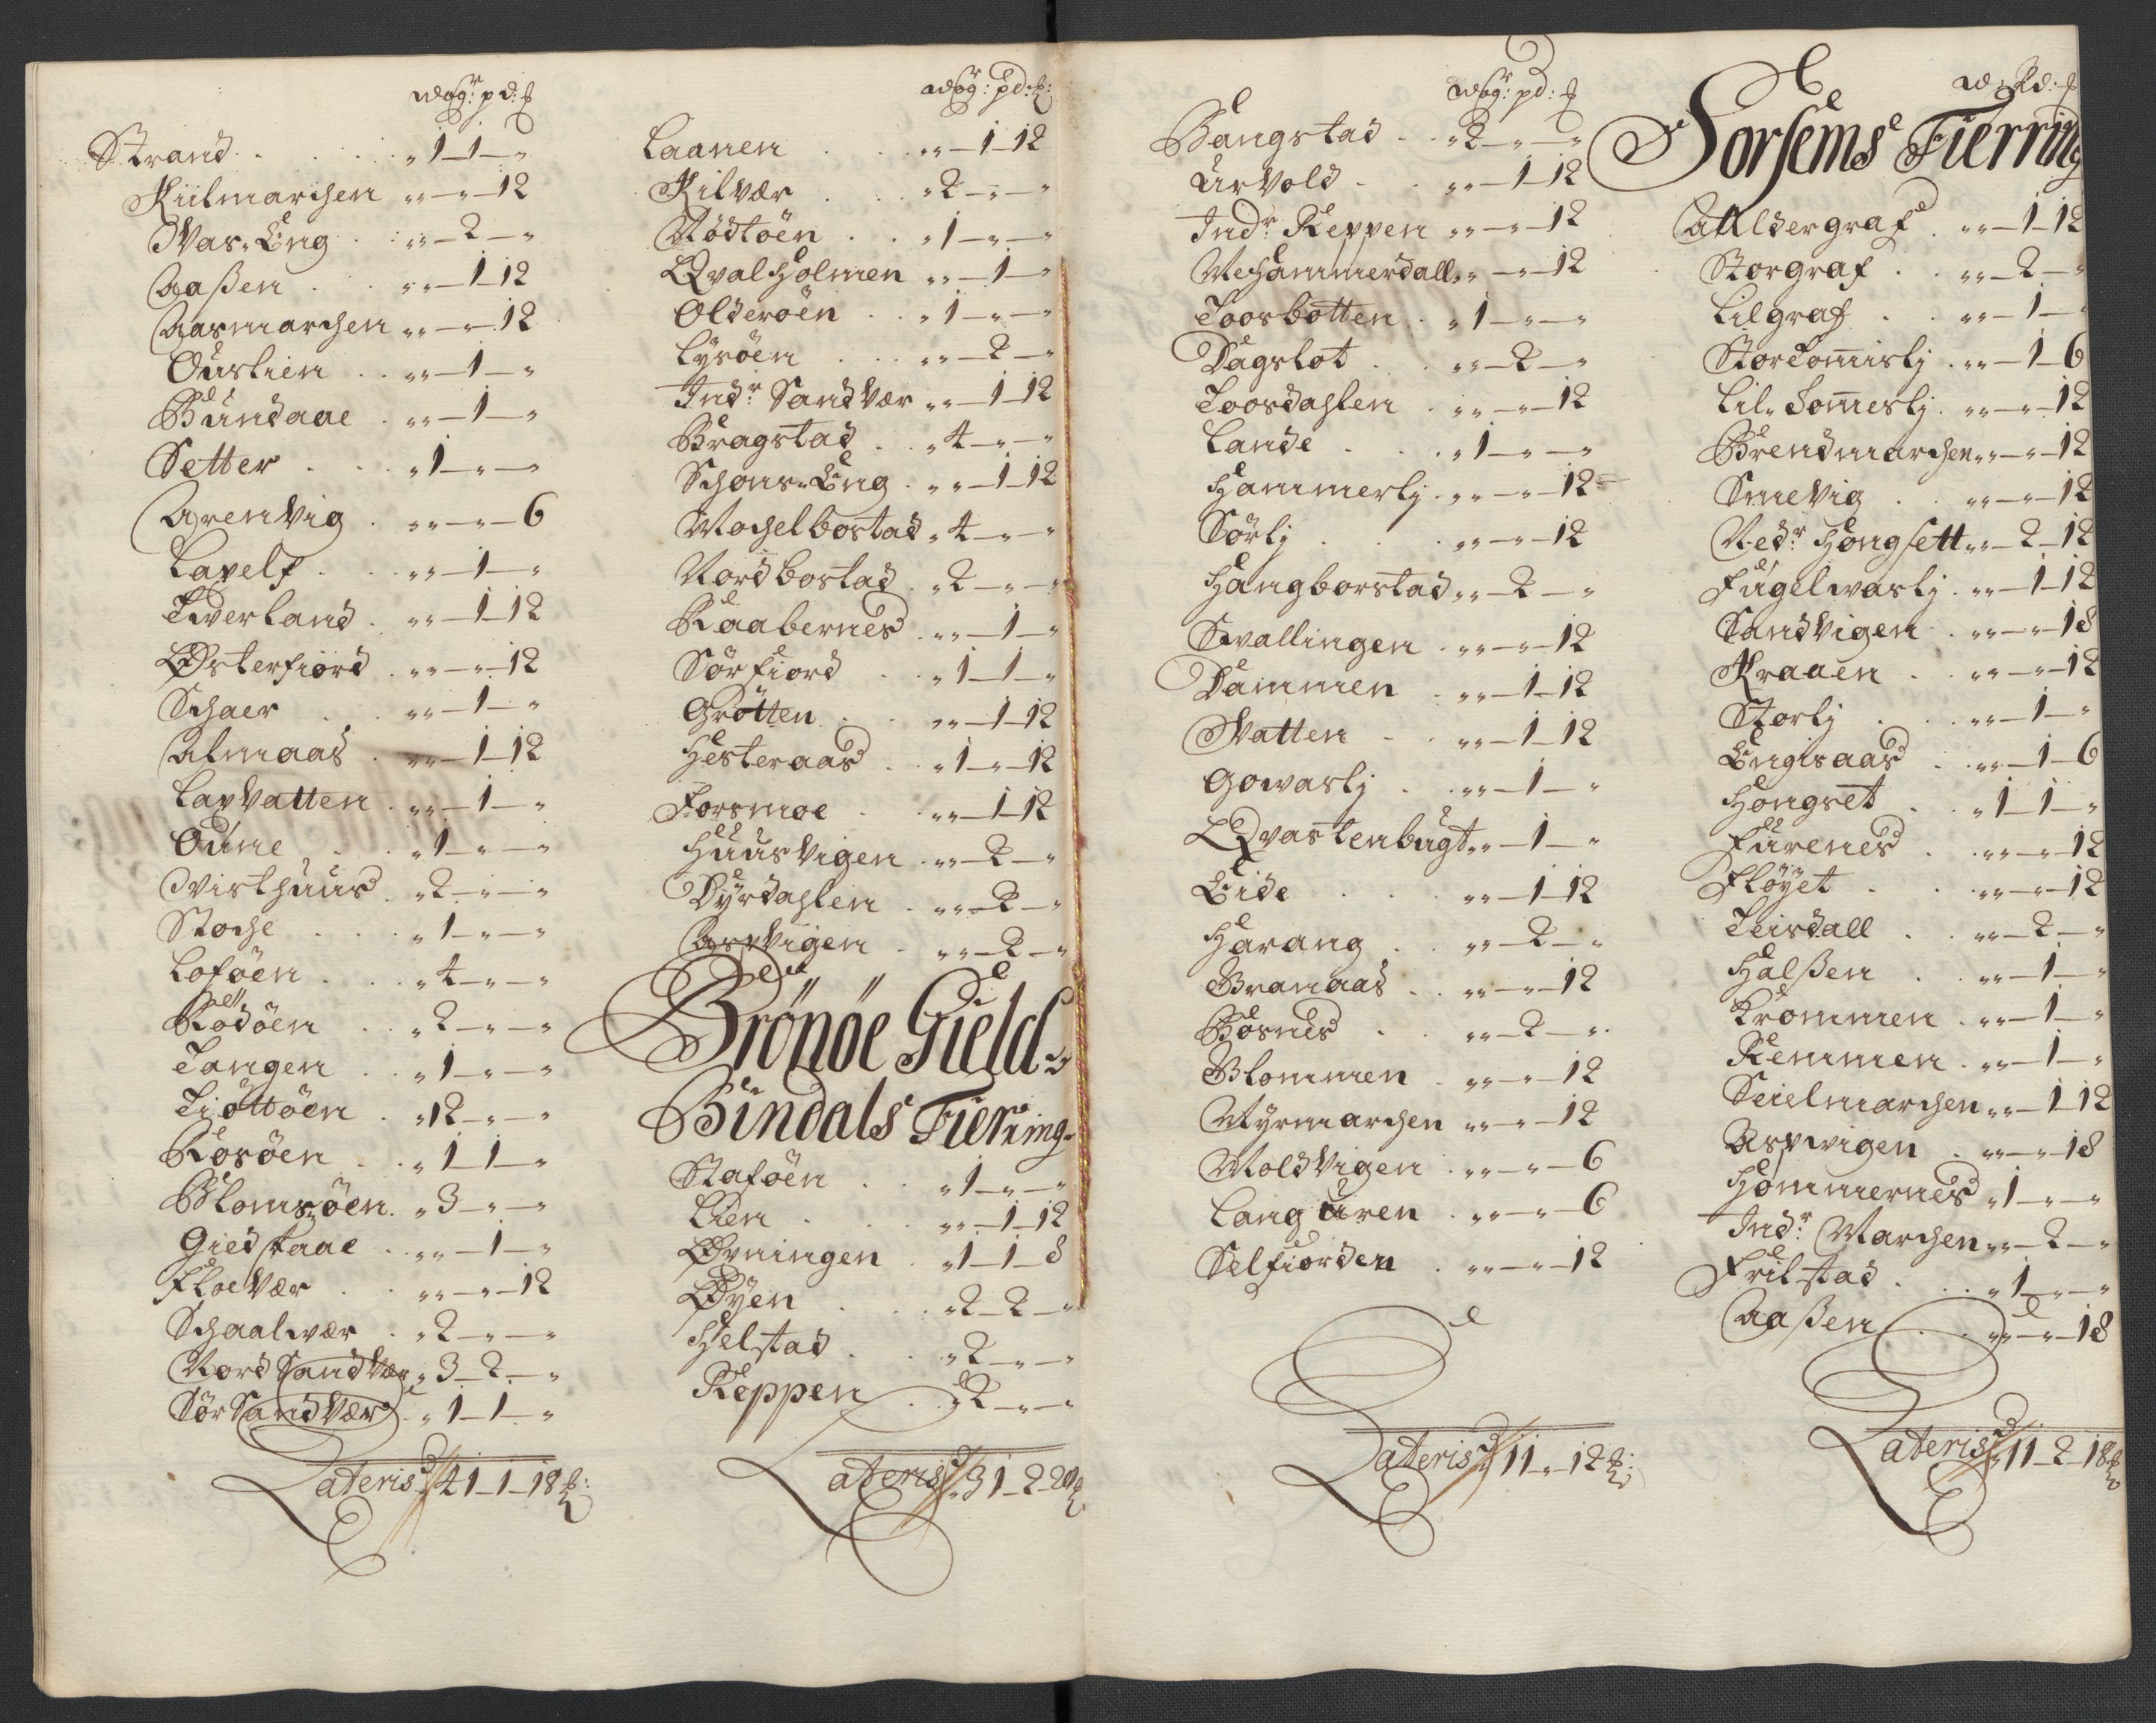 wog: pd: ℔
Strand . . . „ 1 – 1 – „
Kiilmarchen „ „ – „ – 12
Vas. Eng . „ „ – 2 – „
Aaßen . „ „ – 1 – 12
Aasmarchen „ „ – „ – 12
Ouslien . „ „ – 1 – „
Bundaae . „ „ – 1 – „
Setter . . „ 1 – „ – „
Arenvig . „ „ – „ – 6
Lapelf . „ „ – 1 – „
Tverland . „ „ – 1 – 12
Østerfiord . „ „ – „ – 12
Schaer . „ „ – 1 – „
Almaas . „ „ – 1 – 12
Lapvatten . „ „ – 1 – „
Oune . . „ 1 – „ – „
Visthuus . „ 2 – „ – „
Stoche . . „ 1 – „ – „
Loföen . . „ 4 – „ – „
Rödöen . . „ 2 – „ – „
Tangen . . „ 1 – „ – „
Tiöttöen . „ 12 – „ – „
Rosöen . . „ 1 – 1 – „
Blomsöen . „ 3 – „ – „
Giedstaae . „ „ – 1 – „
Floevær . „ „ – „ – 12
Schaalwær . „ 2 – „ – „
Nord Sandvær „ 3 – 2 – „
Sör Sandvær . „ 1 – 1 – „
Lateris „ 41 – 1 – 18 ℔:
wog: pd: ℔:
Laanen . . „ „ – 1 – 12
Kilvær . „ 2 – „ – „
Nödtöen . . „ 1 – „ – „
Qvalholmen „ „ – 1 – „
Olderöen . . „ 1 – „ – „
Lysöen . . „ „ – 2 – „
Indr Sandvær „ „ – 1 – 12
Bragstad . . „ 4 – „ – „
Schons. Eng . „ „ – 1 – 12
Mochelbostad „ 4 – „ – „
Nordbostad . „ 2 – „ – „
Raabernes . „ „ – 1 – „
Sörfiord . . „ 1 – 1 – „
Grötten . „ „ – 1 – 12
Hesteraas . „ 1 – „ – 12
Forsmoe . „ „ – 1 – 12
Huusvigen . „ „ – 2 – „
Dyrdahlen . „ „ – 2 – „
Aspvigen . „ „ – 2 – „
Brönöe Gield.
Bindals Fierring
Staföen . . „ 1 – „ – „
Lien . . „ „ – 1 – 12
Øvningen . „ 1 – 1 – 8
Øyen . . „ 2 – 2 – „
Helstad . „ 2 – „ – „
Reppen . . „ 2 – „ – „
wog: pd: ℔
Bangstad . . „ 2 – „ – „
Urvold . . „ „ – 1 – 12
Indr Reppen „ „ – „ – 12
Mehammerdall „ „ – „ – 12
Toosbotten . „ 1 – „ – „
Dagslot . . „ „ – 2 – „
Toosdahlen . „ „ – „ – 12
Lande . . „ 1 – „ – „
Hammerlj . „ „ – „ – 12
Sörlj . . „ „ – „ – 12
Hangborstad „ „ – 2 – „
Svallingen . „ „ – „ – 12
Dammen . „ „ – 1 – 12
Vatten . „ „ – 1 – 12
Gowaslj . „ „ – 1 – „
Qvastenbugt „ „ – 1 – „
Eide . . „ „ – 1 – 12
Harang . . „ „ – 2 – „
Granaas . . „ „ – „ – 12
Bosnes . . „ „ – 2 – „
Blommen . „ „ – „ – 12
Myrmarchen „ „ – „ – 12
Moldvigen . „ „ – „ – 6
Lang uren . „ „ – „ – 6
Selfiorden . „ „ – „ – 12
Lateris „ 11 – „ – 12 ℔:
w: pd: ℔
Sorsems Fierring
Alldergraf . „ „ – 1 – 12
Storgraf . . „ „ – 2 – „
Lilgraf . . „ „ – 1 – „
Stortomislj . „ „ – 1 – 6
Lil. Tomeslj . „ „ – „ – 12
Brendmarchen „ „ – „ – 12
Smevig . . „ „ – „ – 12
Nedr Hongsett „ „ – 2 – 12
Fugelwaslj . „ „ – 1 – 12
Sandvigen . „ „ – „ – 18
Kraaen . . „ „ – „ – 12
Storlj . . „ „ – 1 – „
Engisaas . „ „ – 1 – 6
Hongset . . „ 1 – 1 – „
Furenes . . „ „ – „ – 12
Flöyet . . „ „ – „ – 12
Teisdall . . „ „ – 2 – „
Halßen . . „ „ – 1 – „
Krommen . „ „ – 1 – „
Remmen . „ „ – 1 – „
Seielmarchen „ „ – 1 – 12
Aspwigen . „ „ – „ – 18
Hommernes „ 1 – „ – „
Indr Marchen „ „ – 2 – „
Frilstad . . „ 1 – „ – „
Aaßen . . „ „ – „ – 18
Lateris „ 11 – 2 – 18 ℔